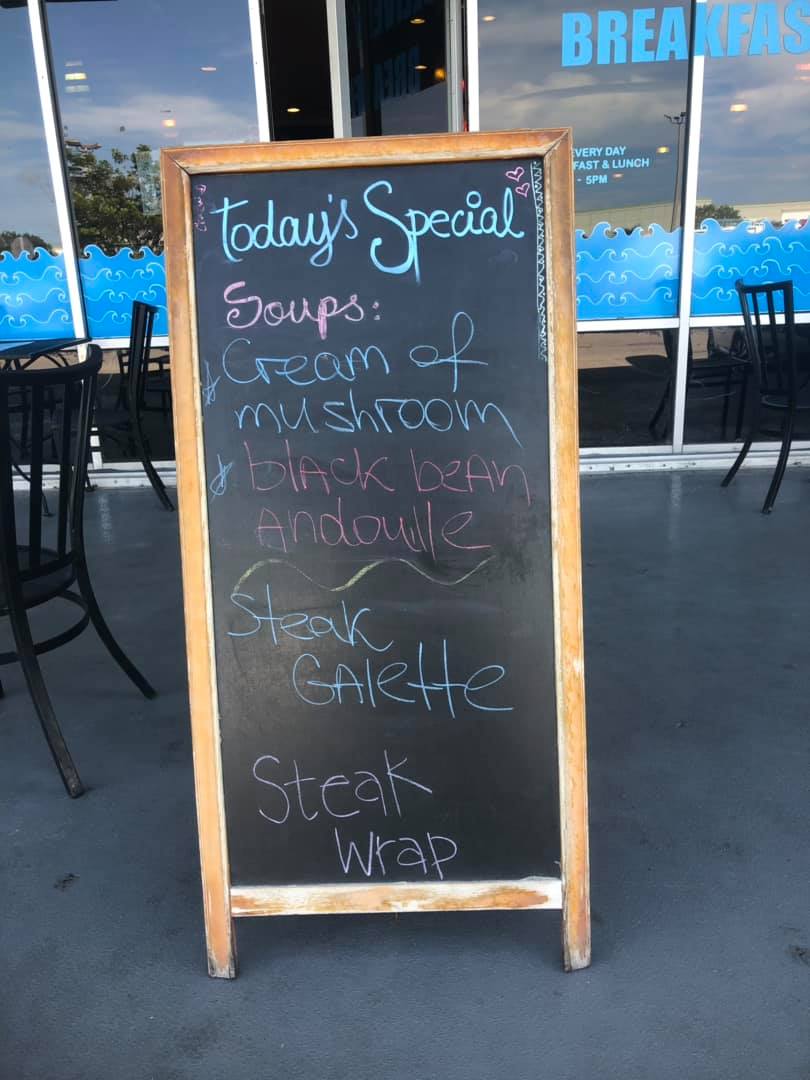 BREAKFAS
EVERY DAY
FAST & LUNCH
- 5PM
Today's Special
Soups:
Cream of
mushroom
black bean
Andouille
Steak
Galette
Steak
Wrap